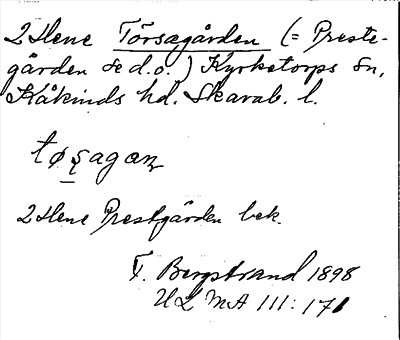 2 Ulene Törsagården (= Preste-
gården se d.o.) Kyrketorps sn,
Kåkinds hd. Skarab. l.
tøʂagaɳ
2 Ulene Prestgården bek.
T. Bergstrand 1898
ULMA 111:171